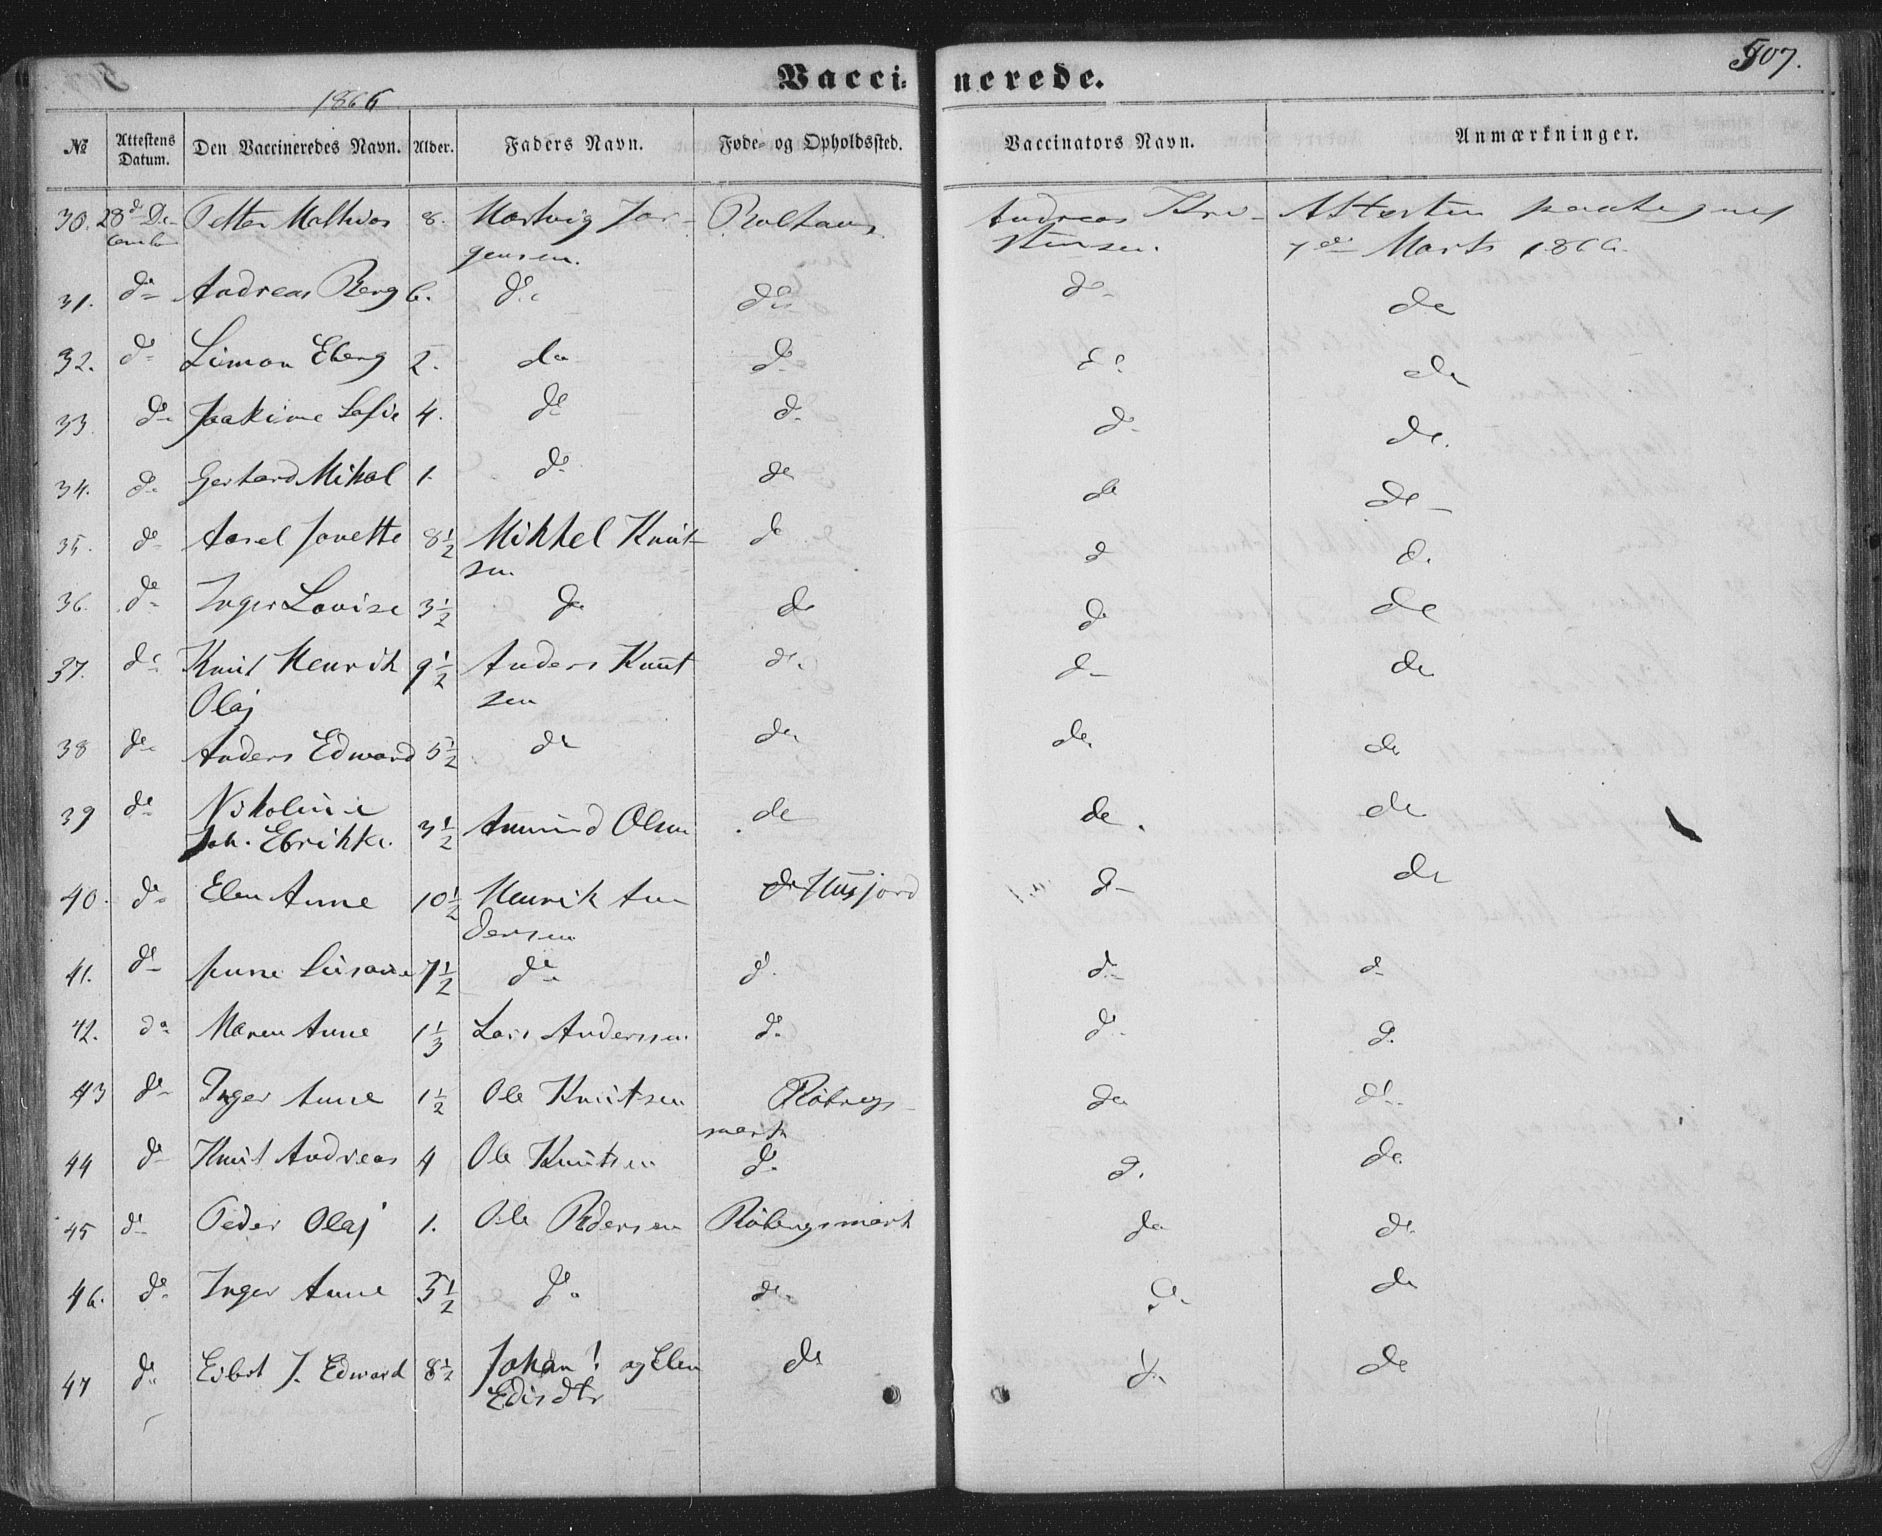 507.
Vaccinerede.
1866
№ Attestens Datum. Den Vaccineredes Navn. Alder. Faders Navn. Føde- og Opholdssted. Vaccinators Navn. Anmærkninger.
30. 28de De- Petter Mathias 8. Hartvig Jør- Andreas Kri- Attesten paategnet
cember gensen. stensen. 7de Marts 1866.
31. do Andreas Berg 6. do do do do
32. do Simon Eberg 2. do do do do
33. do Joakime Sofie 4. do do do do
34. do Gerhard Mikal 1. do do do do
35. do Aasel Janette 8½ Mikkel Knut- do do do
sen
36. do Inger Lovise 3½ do do do do
37. do Knut Henrik 9½ Anders Knut do do do
Olaj sen
38 do Anders Edward 5½ do do do do
39 do Nikoline
Joh. Ebrikke. 3½ Amund Olsen do do do
40. do Elen Anne 10½ Henrik An do Husjord do do
dersen
41. do Anne Susanne 7½ do do do do
42. do Maren Anne 1⅓ Lars Anderssen do do do
43 do Inger Anne 1½ Ole Knutsen Röbergs- do do
mark
44 do Knut Andreas 4 Ole Knutsen do do do
45 do Peder Olaj 1. Ole Pedersen Röbergsmark do do
46. do Inger Anne 3½ do do do do
47 do Eibert J. Edward 8½ Johan! og Elen do do do
Edisdtr